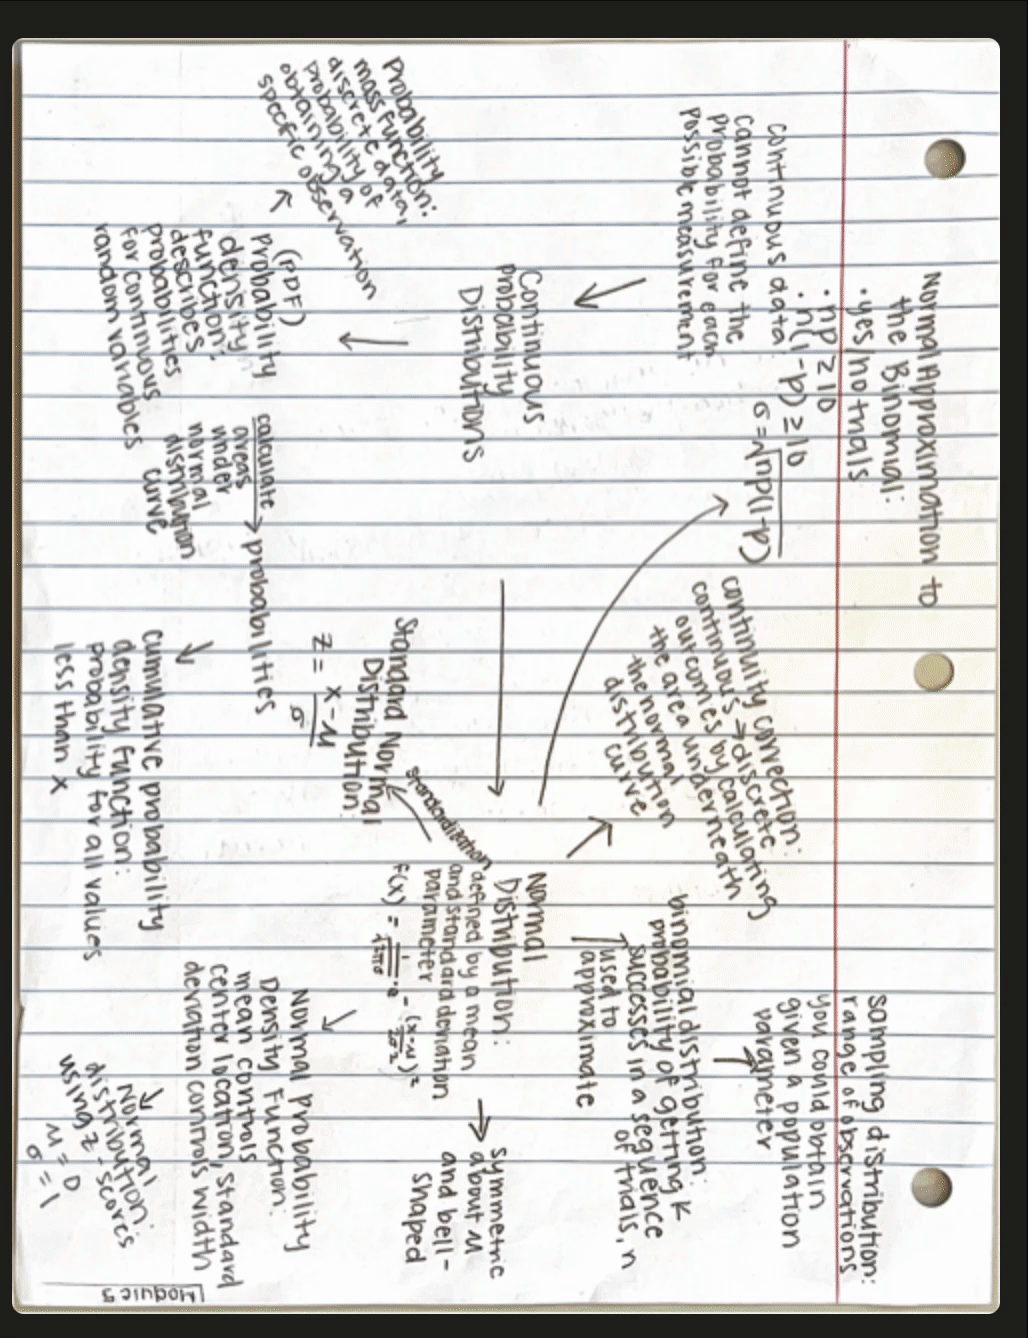 Normal Approximation to
the Binomial:
· yes/no trials
· np ≥ 10
· n(1-p) ≥ 10
σ = √np(1-p)
continuous data:
cannot define the
probability for each
possible measurement
continuity correction:
continuous → discrete
outcomes by calculating
the area underneath
the normal
distribution
curve
sampling distribution:
range of observations
you could obtain
given a population
parameter
binomial distribution:
probability of getting k
successes in a sequence
of trials, n
used to
approximate
Continuous
probability
Distributions
Normal
Distribution:
defined by a mean
and standard deviation
parameter
symmetric
about μ
and bell-
shaped
standardization
Standard Normal
Distribution:
z = x-μ
σ
Probability
mass function:
discrete data,
probability of
obtaining a
specific observation
(PDF)
probability
density
function:
describes
probabilities
for continuous
random variables
calculate
areas
under
normal
distribution
curve
probabilities
cumulative probability
density function:
probability for all values
less than x
Normal probability
Density Function:
mean controls
center location, standard
deviation controls width
Normal
distribution:
using z-scores
μ = 0
σ = 1